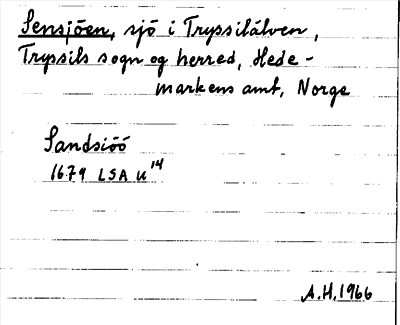 Sensjöen, sjö i Tryssilälven,
Tryssils sogn og herred, Hede-
markens amt, Norge
Sandsiöö
1679 LSA U14
A.H. 1966